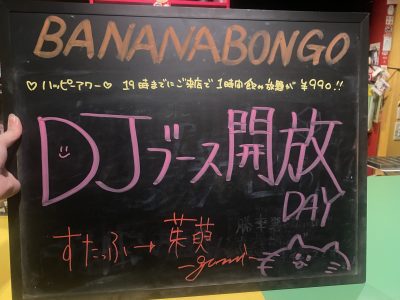 BANANABONGO
♡ハッピアワー♡ 19時までにご来店で1時間飲み放題が¥990.!!
DJブース開放
DAY
すたっふ→茱萸
-gumi-